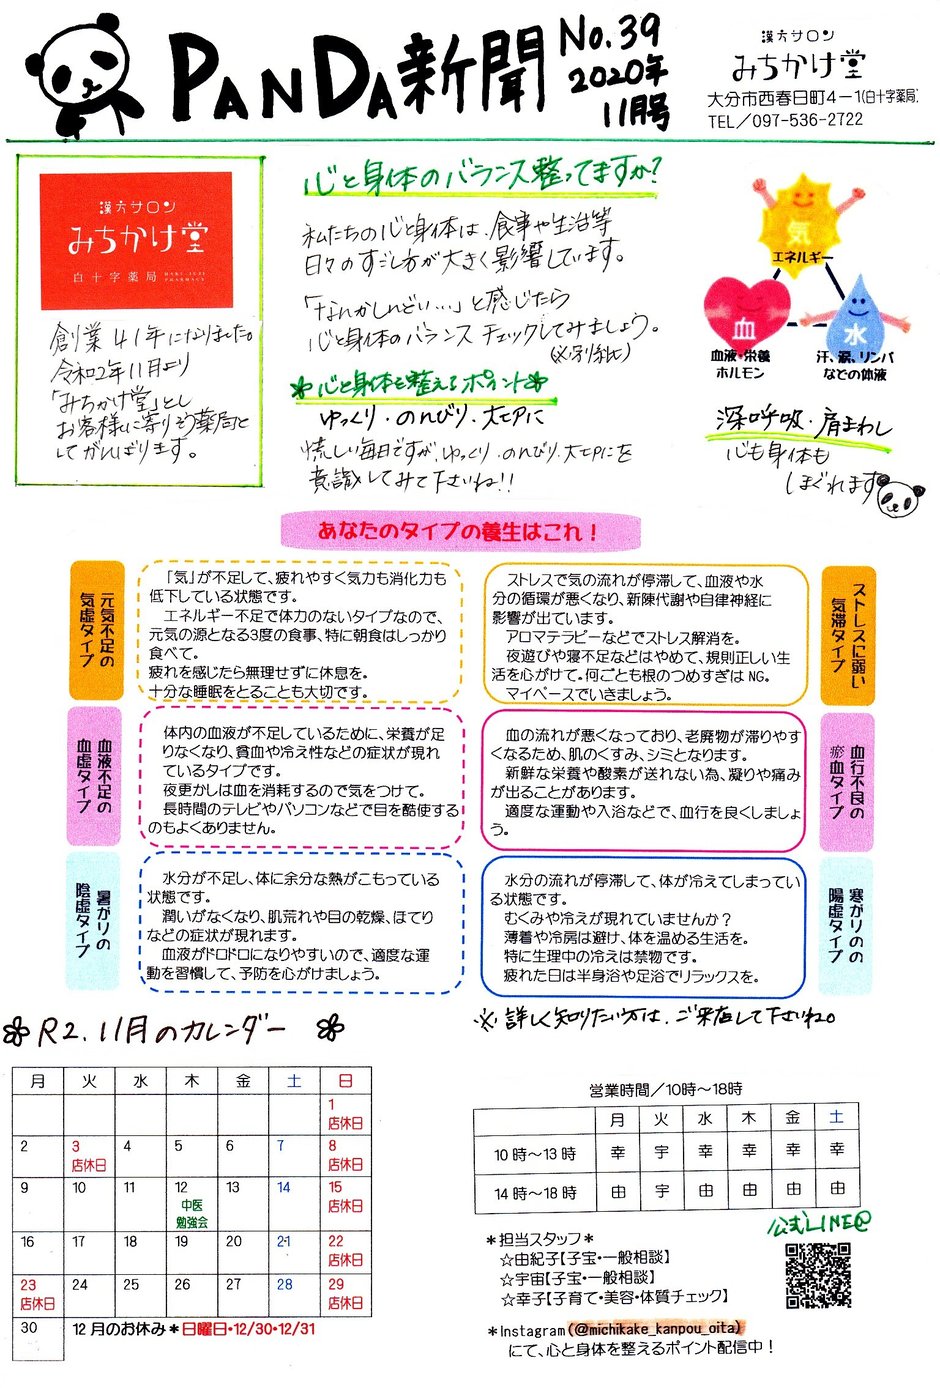 PANDA新聞
No.39
2020年
11月号
漢方サロン
みちかけ堂
大分市西春日町4-1(白十字薬局)
TEL/097-536-2722
漢方サロン
みちかけ堂
白十字薬局
創業41年になりました。
令和2年11月より
「みちかけ堂」とし
お客様に寄りそう薬局と
してがんばります。
心と身体のバランス整ってますか?
私たちの心と身体は、食事や生活等
日々のすごし方が大きく影響しています。
「なんかしんどい…」と感じたら
心と身体のバランスチェックしてみましょう。
(※別紙)
心と身体を整えるポイント
ゆっくり・のんびり・大切に
慌しい毎日ですが、ゆっくり・のんびり・大切にを
意識してみて下さいね!!
気
エネルギー
血
血液・栄養
ホルモン
水
汗、涙、リンパ
などの体液
深呼吸・肩まわし
心も身体も
ほぐれます
あなたのタイプの養生はこれ!
元気不足の
気虚タイプ
「気」が不足して、疲れやすく気力も消化力も
低下している状態です。
エネルギー不足で体力のないタイプなので、
元気の源となる3度の食事、特に朝食はしっかり
食べて。
疲れを感じたら無理せずに休息を。
十分な睡眠をとることも大切です。
ストレスで気の流れが停滞して、血液や水
分の循環が悪くなり、新陳代謝や自律神経に
影響が出ています。
アロマテラピーなどでストレス解消を。
夜遊びや寝不足などはやめて、規則正しい生
活を心がけて。何ごとも根のつめすぎはNG。
マイペースでいきましょう。
ストレスに弱い
気滞タイプ
血液不足の
血虚タイプ
体内の血液が不足しているために、栄養が足
りなくなり、貧血や冷え性などの症状が現れ
ているタイプです。
夜更かしは血を消耗するので気をつけて。
長時間のテレビやパソコンなどで目を酷使する
のもよくありません。
血の流れが悪くなっており、老廃物が滞りやす
くなるため、肌のくすみ、シミとなります。
新鮮な栄養や酸素が送れない為、凝りや痛み
が出ることがあります。
適度な運動や入浴などで、血行を良くしましょ
う。
血行不良の
瘀血タイプ
暑がりの
陰虚タイプ
水分が不足し、体に余分な熱がこもっている
状態です。
潤いがなくなり、肌荒れや目の乾燥、ほてり
などの症状が現れます。
血液がドロドロになりやすいので、適度な運
動を習慣して、予防を心がけましょう。
水分の流れが停滞して、体が冷えてしまってい
る状態です。
むくみや冷えが現れていませんか?
薄着や冷房は避け、体を温める生活を。
特に生理中の冷えは禁物です。
疲れた日は半身浴や足浴でリラックスを。
寒がりのの
陽虚タイプ
R2.11月のカレンダー
※詳しく知りたい方は、ご来店して下さいね。
月 火 水 木 金 土 日
1
店休日
2 3 4 5 6 7 8
店休日 店休日
9 10 11 12 13 14 15
中医 店休日
勉強会
16 17 18 19 20 21 22
店休日
23 24 25 26 27 28 29
店休日 店休日
30 12月のお休み*日曜日・12/30・12/31
営業時間/10時~18時
月 火 水 木 金 土
10時~13時 幸 宇 幸 幸 幸 幸
14時~18時 由 宇 由 由 由 由
公式LINE@
*担当スタッフ*
☆由紀子【子宝・一般相談】
☆宇宙【子宝・一般相談】
☆幸子【子育て・美容・体質チェック】
*Instagram(@michikake_kanpou_oita)
にて、心と身体を整えるポイント配信中!